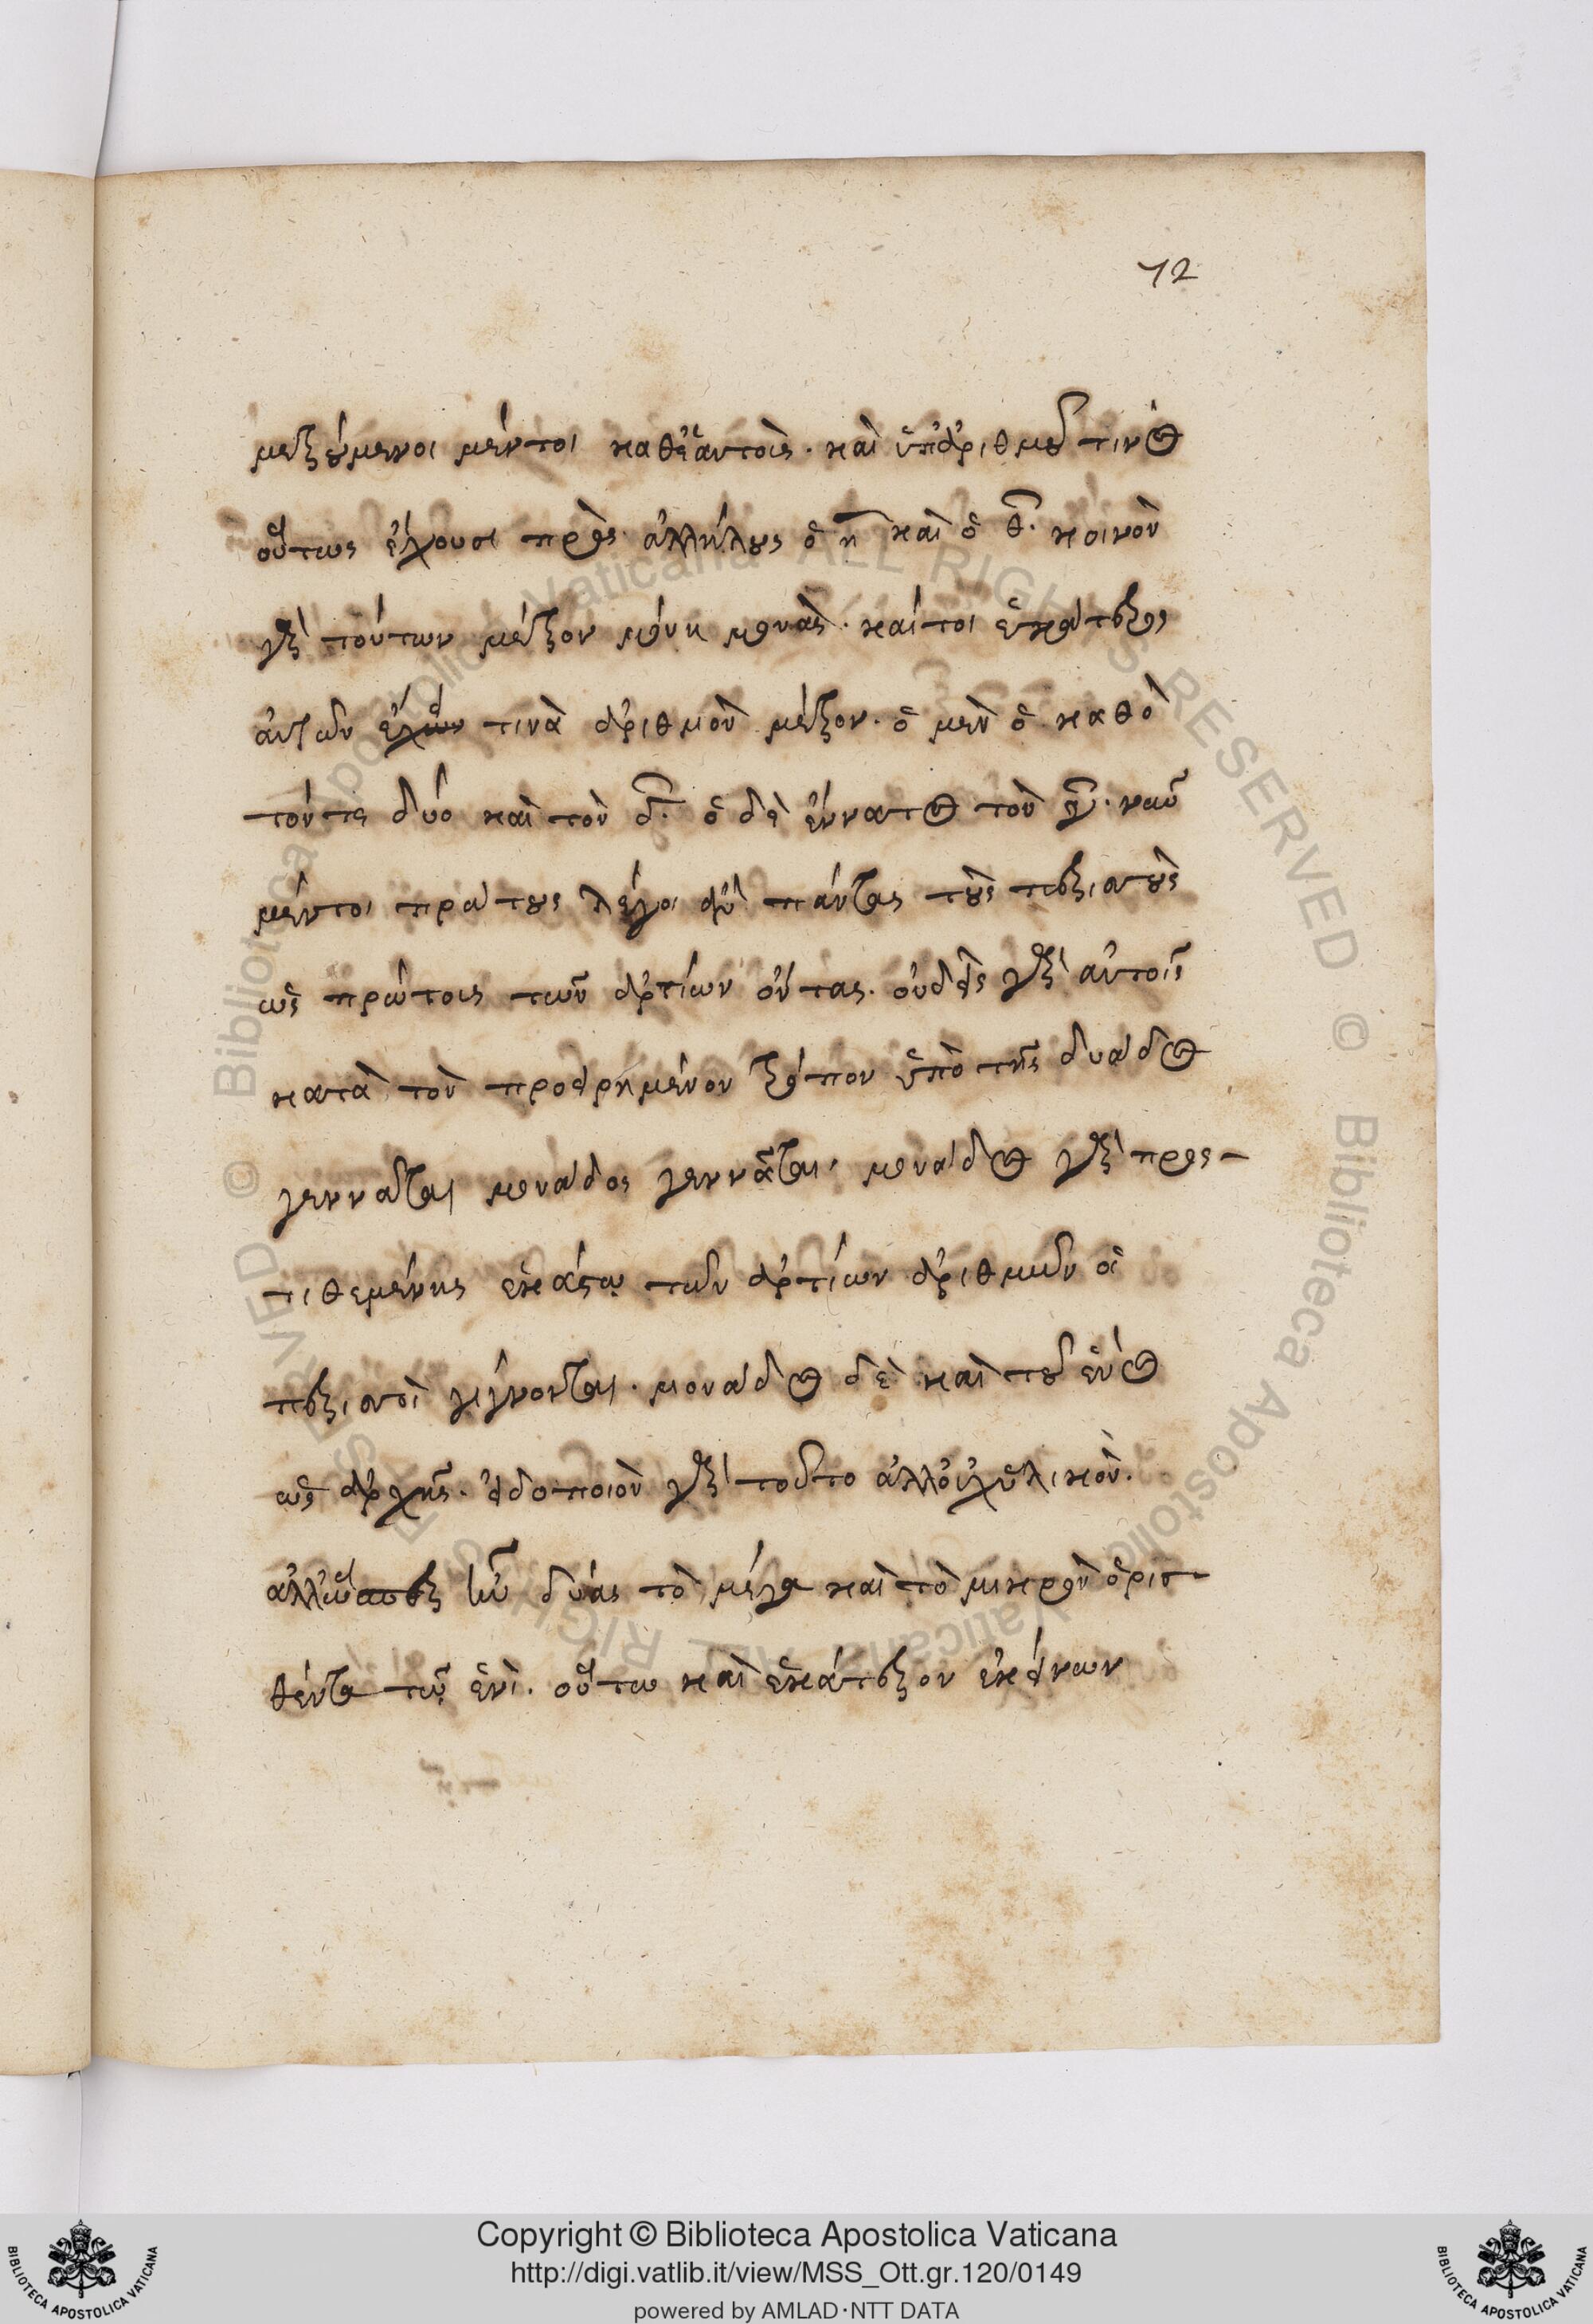 72
μετρούμενοι μέντοι καθ' ἑαυτοὺς. καὶ ὑπ' ἀριθμοῦ τινος
οὕτως ἔχουσι πρὸς ἀλλήλους ὁ η καὶ ὁ θ. κοινὸν
γὰρ τούτων μέτρον μόνη μονὰς. καίτοι ἑκάτερος
αὐτῶν ἔχων τινὰ ἀριθμὸν μέτρον. ὁ μὲν
τόν τε δύο καὶ τὸν δ. ὁ δὲ ἔννατος τὸν γ. νῦν
μέντοι πρώτους λέγοι ἂν πάντας τοὺς περισσοὺς
ὡς πρώτοις τῶν ἀρτίων ὄντας. οὐδεὶς γὰρ αὐτοῖς
κατὰ τὸν προειρημένον τρόπον ὑπὸ τῆς δυάδος
γεννᾶται μονάδος γεννᾶται, μονάδος γὰρ προσ-
τιθεμένης ἑκάστῳ τῶν ἀρτίων ἀριθμῶν οἱ
περισσοὶ γίγνονται. μονάδος δὲ καὶ τοῦ ἑνὸς
ὡς ἀρχῆς. εἰδοποιὸν γὰρ τοῦτο ἀλλ' οὐχ ὑλικὸν.
ἀλλ' ὥσπερ ἦν δυάς τὸ μέγα καὶ τὸ μικρὸν ὁρισ-
θέντα τῷ ἑνὶ. οὕτω καὶ ἑκάτερον ἐκείνων
Copyright © Biblioteca Apostolica Vaticana
http://digi.vatlib.it/view/MSS_Ott.gr.120/0149
powered by AMLAD·NTT DATA